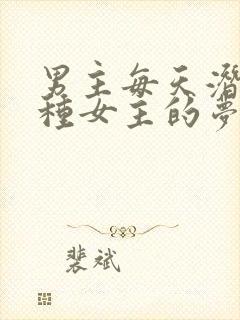 男主每天潛
種女主的夢
裴斌